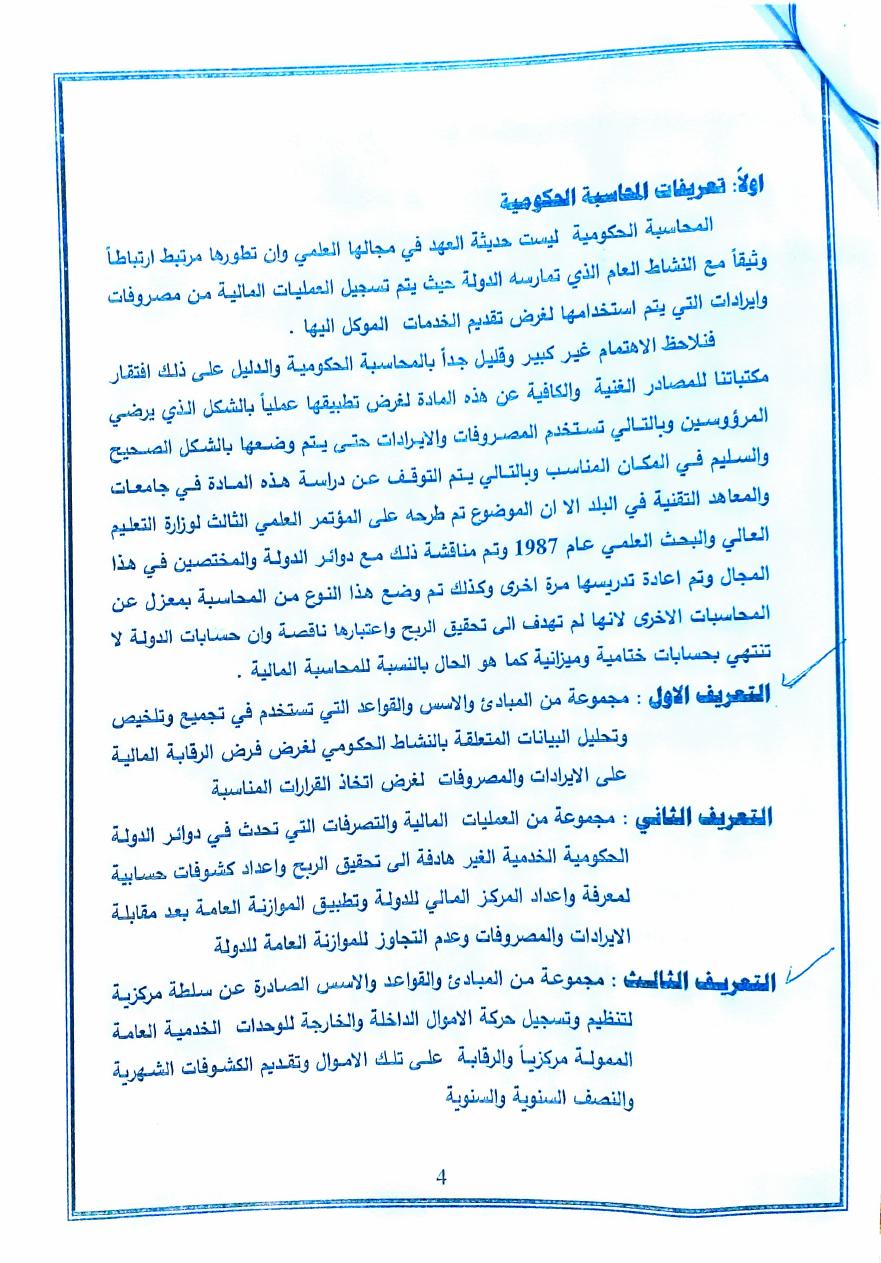 اولاً: تعريفات المحاسبة الحكومية
المحاسبة الحكومية ليست حديثة العهد في مجالها العلمي وان تطورها مرتبط ارتباطاً
وثيقاً مع النشاط العام الذي تمارسه الدولة حيث يتم تسجيل العمليات المالية من مصروفات
وايرادات التي يتم استخدامها لغرض تقديم الخدمات الموكل اليها .
فنلاحظ الاهتمام غير كبير وقليل جداً بالمحاسبة الحكومية والدليل على ذلك افتقار
مكتباتنا للمصادر الغنية والكافية عن هذه المادة لغرض تطبيقها عملياً بالشكل الذي يرضي
المرؤوسين وبالتالي تستخدم المصروفات والايرادات حتى يتم وضعها بالشكل الصحيح
والسليم في المكان المناسب وبالتالي يتم التوقف عن دراسة هذه المادة في جامعات
والمعاهد التقنية في البلد الا ان الموضوع تم طرحه على المؤتمر العلمي الثالث لوزارة التعليم
العالي والبحث العلمي عام 1987 وتم مناقشة ذلك مع دوائر الدولة والمختصين في هذا
المجال وتم اعادة تدريسها مرة اخرى وكذلك تم وضع هذا النوع من المحاسبة بمعزل عن
المحاسبات الاخرى لانها لم تهدف الى تحقيق الربح واعتبارها ناقصة وان حسابات الدولة لا
تنتهي بحسابات ختامية وميزانية كما هو الحال بالنسبة للمحاسبة المالية .
التعريف الاول : مجموعة من المبادئ والاسس والقواعد التي تستخدم في تجميع وتلخيص
وتحليل البيانات المتعلقة بالنشاط الحكومي لغرض فرض الرقابة المالية
على الايرادات والمصروفات لغرض اتخاذ القرارات المناسبة
التعريف الثاني : مجموعة من العمليات المالية والتصرفات التي تحدث في دوائر الدولة
الحكومية الخدمية الغير هادفة الى تحقيق الربح واعداد كشوفات حسابية
لمعرفة واعداد المركز المالي للدولة وتطبيق الموازنة العامة بعد مقابلة
الايرادات والمصروفات وعدم التجاوز للموازنة العامة للدولة
التعريف الثالث : مجموعة من المبادئ والقواعد والاسس الصادرة عن سلطة مركزية
لتنظيم وتسجيل حركة الاموال الداخلة والخارجة للوحدات الخدمية العامة
الممولة مركزياً والرقابة على تلك الاموال وتقديم الكشوفات الشهرية
والنصف السنوية والسنوية
4